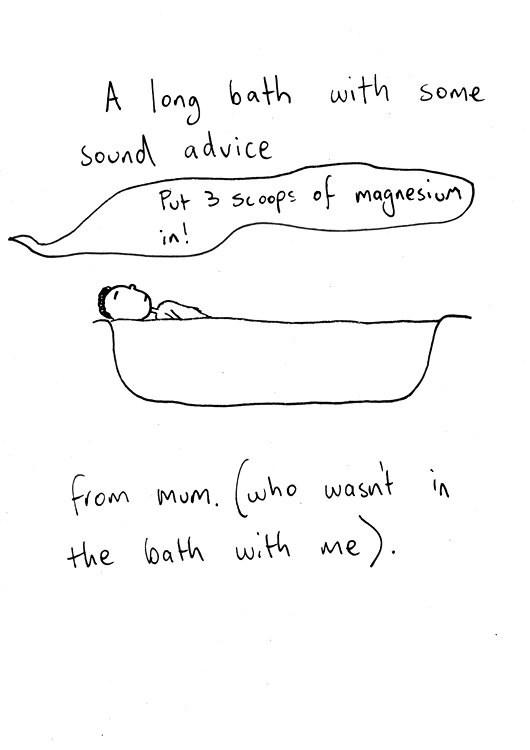 A long bath with some
sound advice
Put 3 scoops of magnesium
in!
from mum. (who wasn't in
the bath with me).